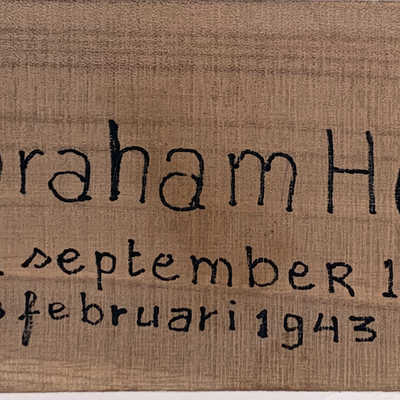 raham H
september 1
februari 1943